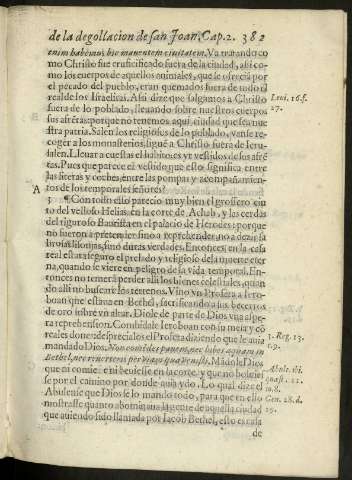 de la degollacion de san Joan. Cap. 2. 382
enim habemus hic manentem ciuitatem. Va tratando co
mo Christo fue crucificado fuera de la ciudad, assi co-
mo los cuerpos de aquellos animales, que se ofrecia por
el pecado del pueblo, eran quemados fuera de todo el
real de los Israelitas. Assi dize que salgamos a Christo
Leui. 16. f.
27.
fuera de lo poblado, lleuando sobre nuestros cuerpos
sus afrētas: porque no tenemos aqui ciudad que sea nu
estra patria. Salen los religiosos de lo poblado, vanse re-
coger a los monasterios, siguē a Christo fuera de Ierusa
lalen. Lleuar a cuestas el habito es yr vestidos de sus afrē
tas. Pues que parece el vestido que esto significa entre
las literas y coches, entre las pompas y acompañamien-
A tos de los temporales señores?
3 ¶ Con todo esso parecio muy bien el grossero cin
to del velloso Helias en la corte de Achab, y las cerdas
del riguroso Bautista en el palacio de Herodes: porque
no fueron a pretender sino a reprehender, no a dezir sa
brosas lisonjas, sino duras verdades. Entonces en la casa
real estara seguro el prelado y religioso de la muerte eter
na, quando se viere en peligro de la vida temporal. En-
tonces no temerá perder alli los bienes celestiales, quan
do alli no busca re los terrenos. Vino vn Profeta a Iero-
boan que estaua en Bethel, sacrificando a sus bezerros
de oro sobre vn altar. Diole de parte de Dios vna aspe-
ra reprehension. Combidale Ieroboan con su mesa y cō
reales dones: desprecialos el Profeta diziendo que le auia
3. Reg. 13.
b. 9.
mandado Dios. Non comedes panem, nec bibes aquam in
Bethel, nec reuerteris per viam qua venisti. Mādole Dios
Abule. ibi.
quæst. 11.
que ni comiesse ni beuiesse en la corte, y que no boluies
se por el camino por donde auia ydo. Lo qual dize el
in 8.
Abulense que Dios se lo mando todo, para que en esto
Gen. 28. d.
19.
mostrasse quanto abominaua la gente de aquella ciudad
que auiendo sido llamada por Iacob Bethel, esto es casa
de